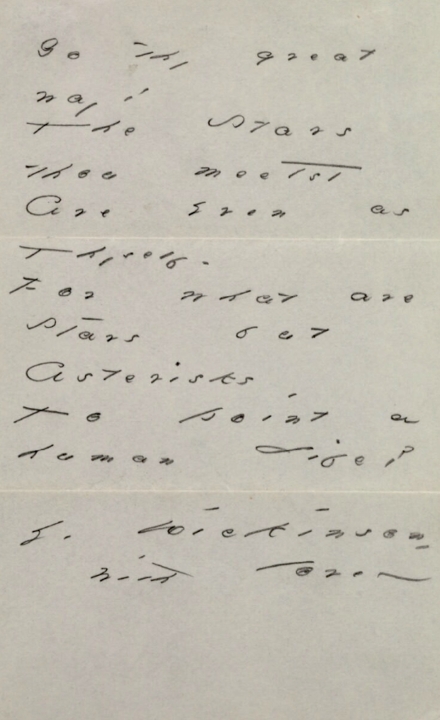 Go thy great
way!
The Stars
thou meetst
Are Even as
Thyself.
For what are
Stars but
Asterisks
To point a
human Life?
E. Dickinson
with love